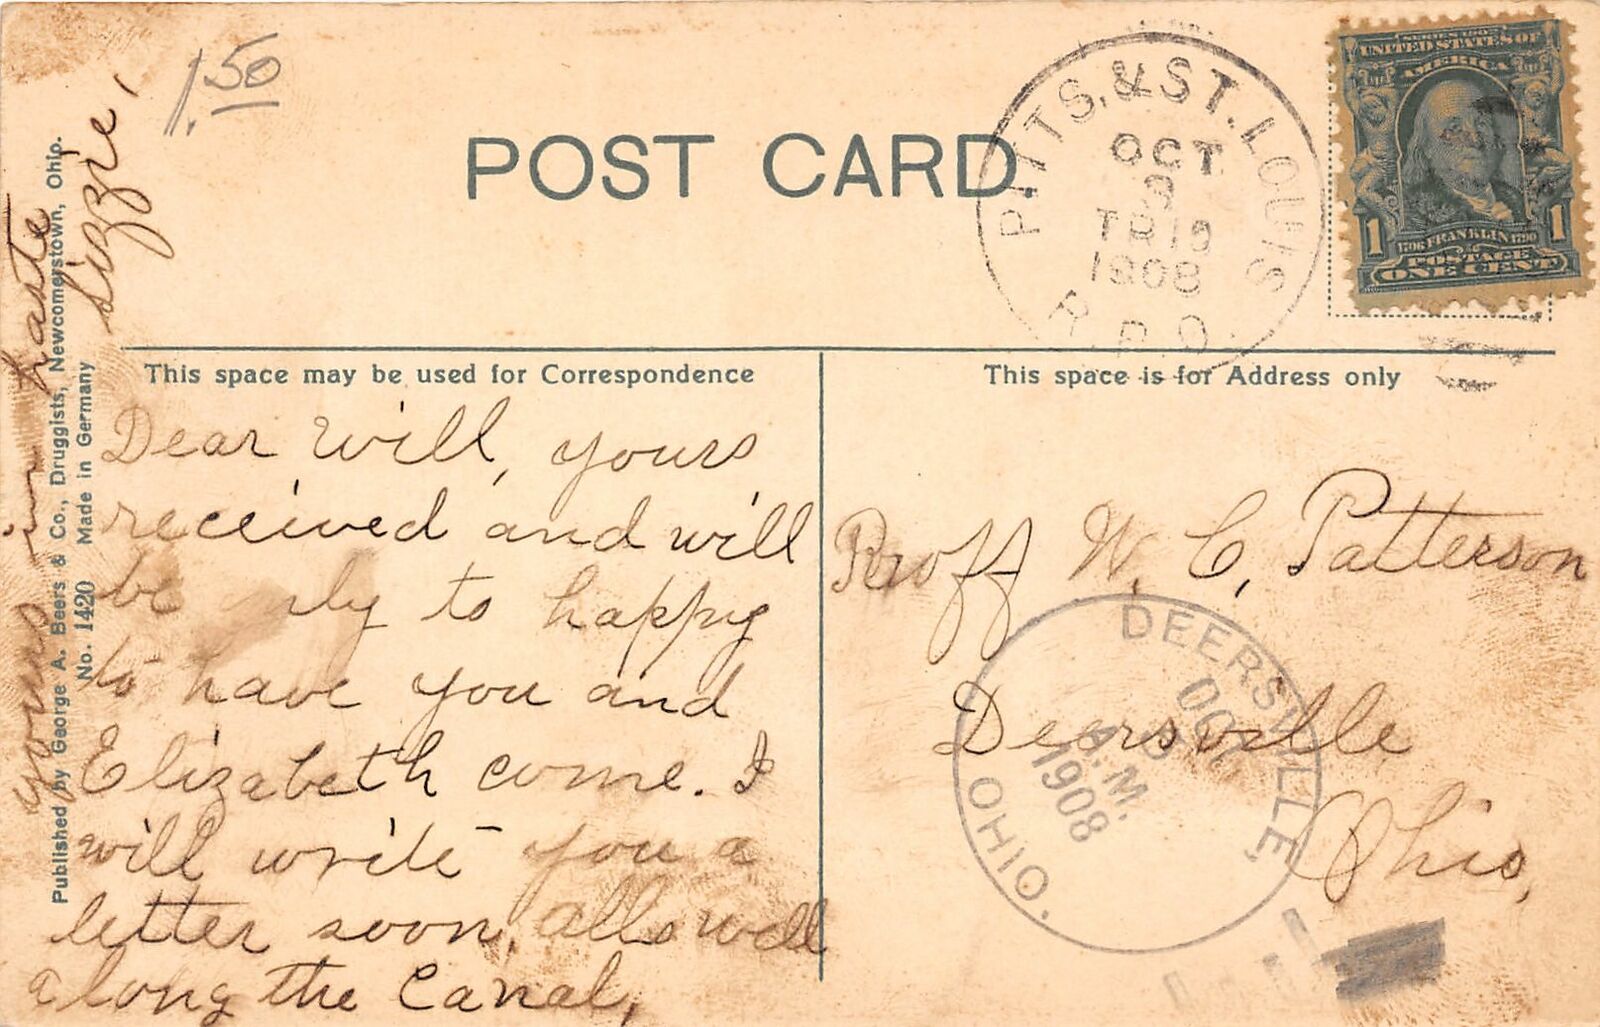 1.50
POST CARD
PITTS. & ST. LOUIS
OCT
9
TR 19
1908
R.P.O.
SERIES 1902
UNITED STATES OF
AMERICA
1 1
1706 FRANKLIN 1790
POSTAGE
ONE CENT
This space may be used for Correspondence
This space is for Address only
Dear Will, yours
received and will
be to happy
to have you and
Elizabeth come. I
will write you a
letter soon. Alls well
along the Canal,
yours in haste
Lizzie,
Proff W. C. Patterson
Deersville
Ohio,
DEERSVILLE,
OCT
A.M.
1908
OHIO.
Published by George A. Beers & Co., Druggists, Newcomerstown, Ohio.
No. 1420 Made in Germany